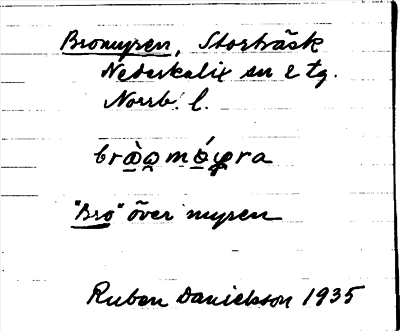 Bromyren, Storträsk
Nederkalix sn 2 tg.
Norrb. l.
"Bro" över myren
Ruben Danielsson 1935